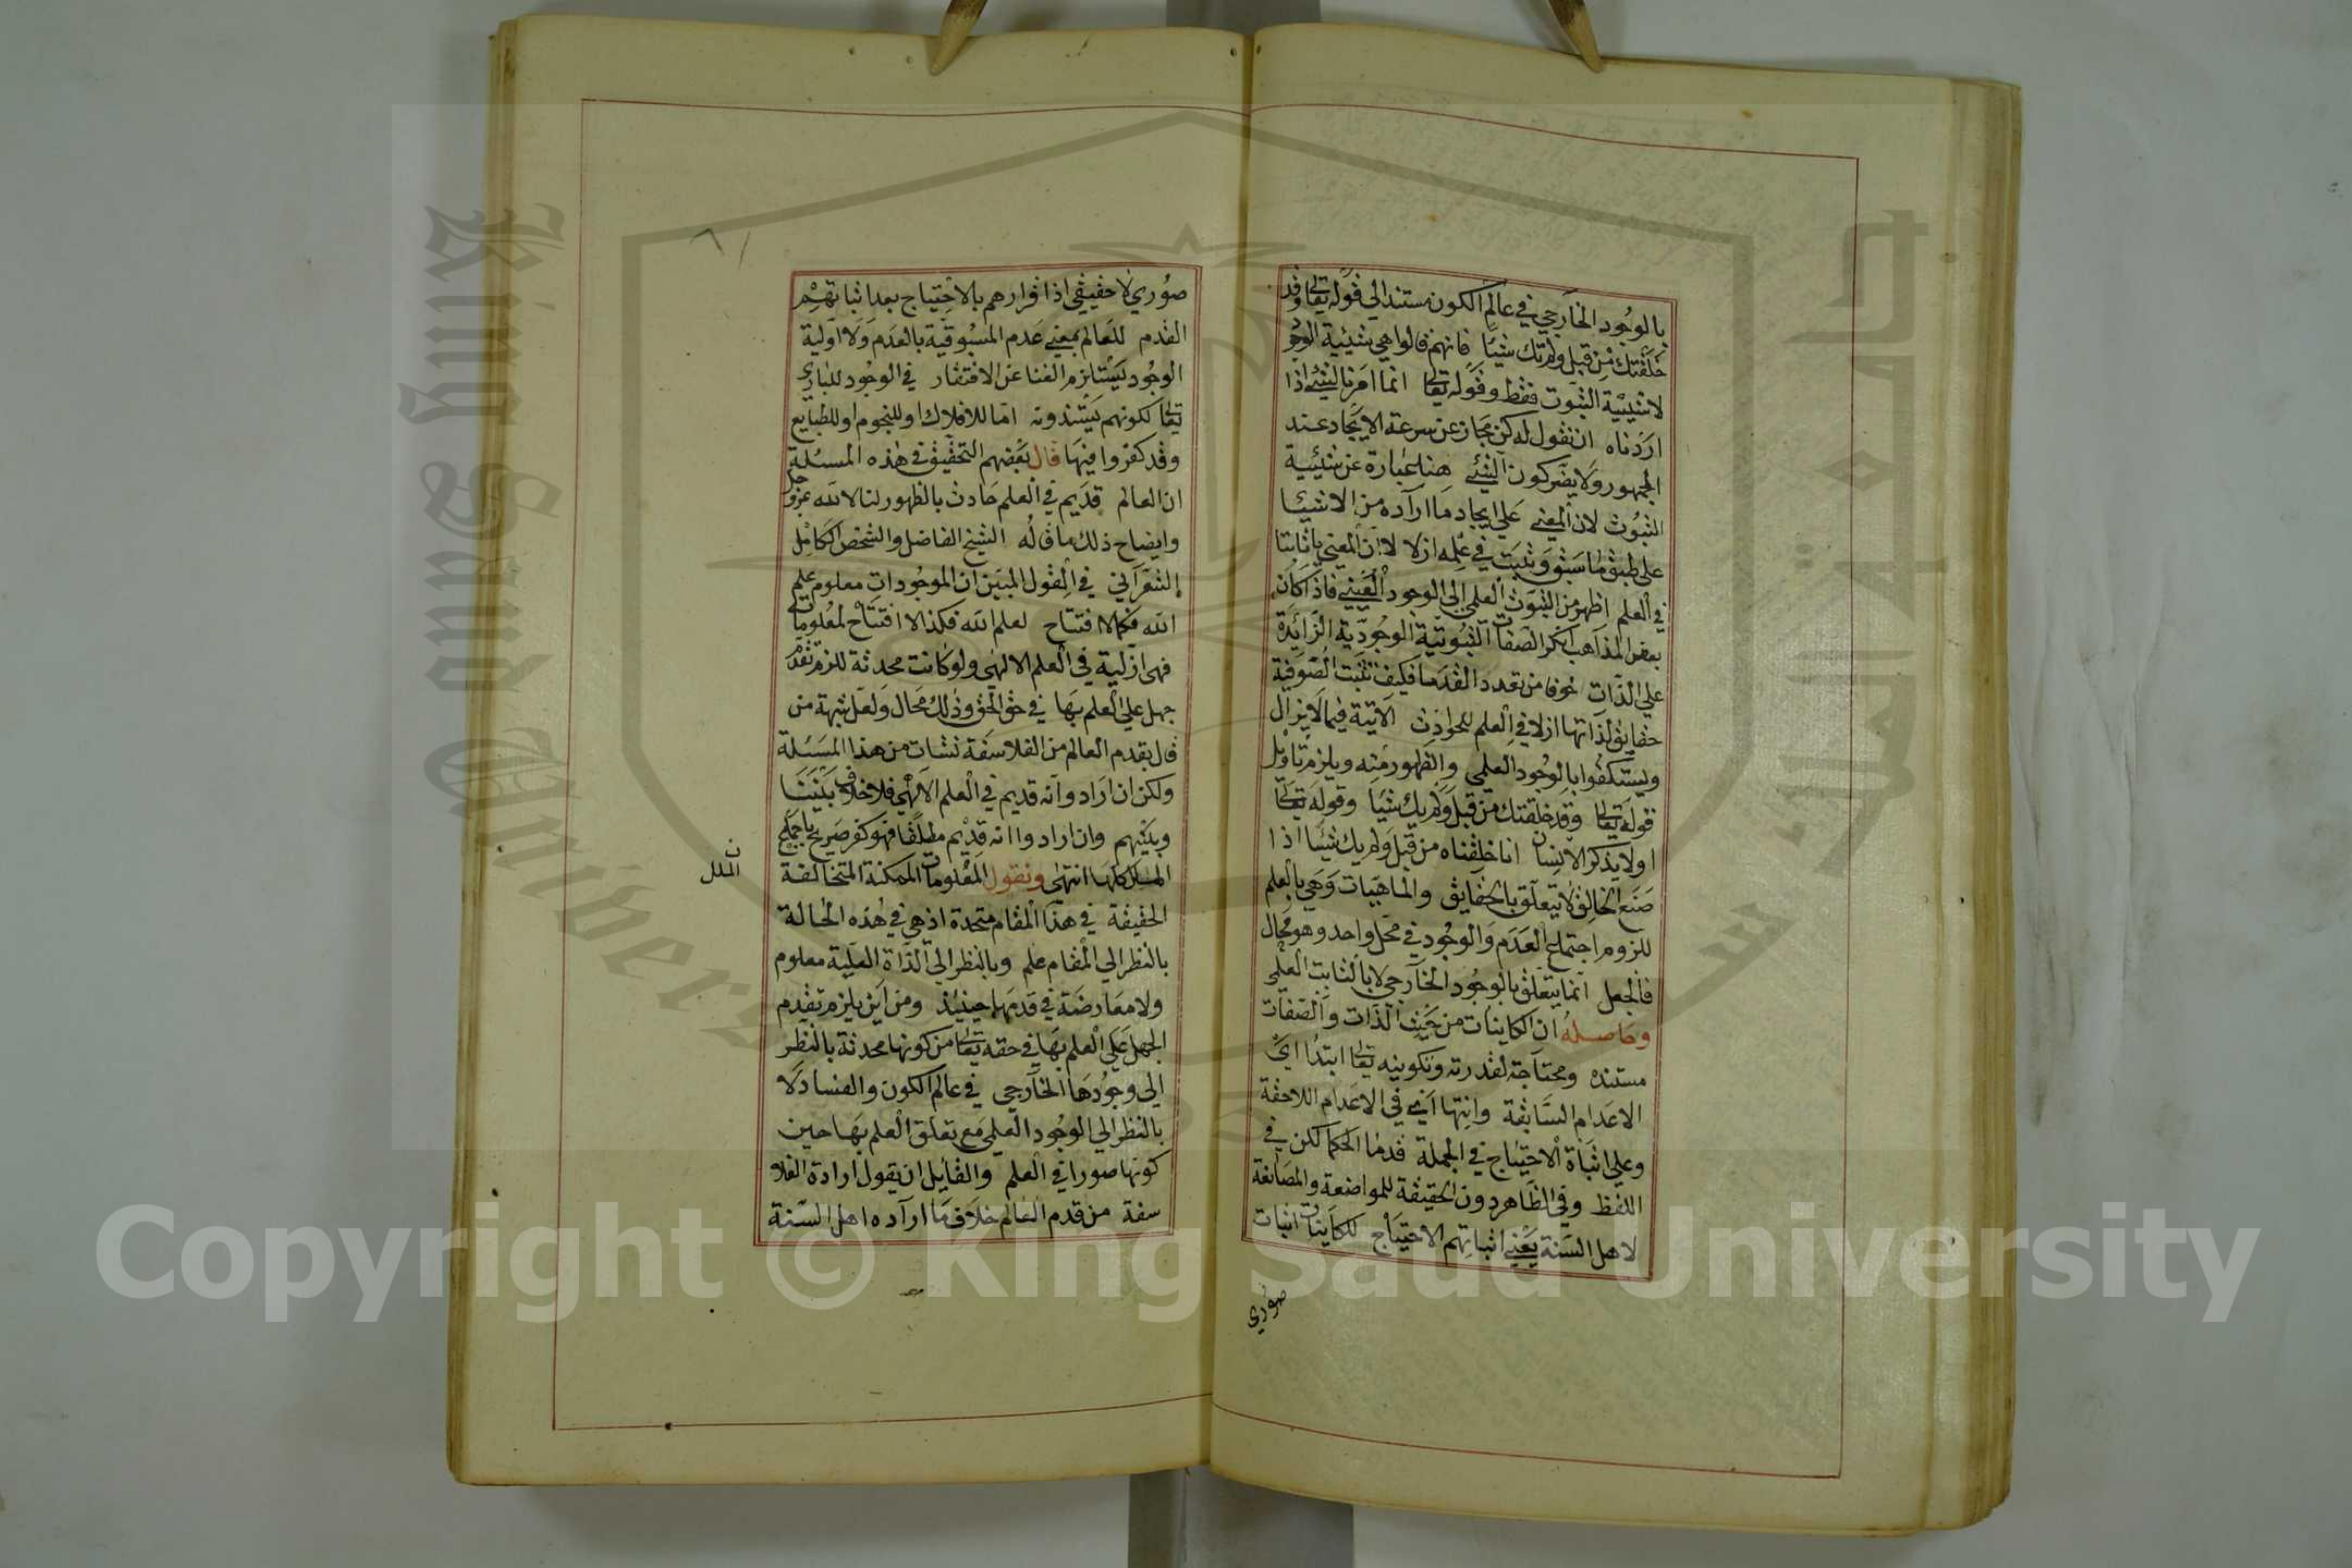 بالوجود الخارجي في عالم الكون مستند الي قوله تعالى وقد
خلقتك من قبل ولم تك شيئا فانهم قالوا هي شيئية الوجو
لا شيئية الثبوت فقط وقوله تعالى انما امرنا لشيئ اذا
اردناه ان نقول له كن مجاز عن سرعة الايجاد عند
الجمهور ولا يضر كون الشيئ هنا عبارة عن شيئية
الثبوت لان المعني علي ايجاد ما اراده من الاشيا
على طبق ما سبق وثبت في علمه ازلا لا ان المعني يا ثابتا
في العلم اظهر من الثبوت العلمي الى الوجود العيني فاذا كان
بعض المذاهب انكر الصفات الثبوتية الوجودية الزائدة
علي الذات خوفا من تعدد القدما فكيف تثبت الصوفية
حقايق لذاتها ازلا في العلم للحوادث الآتية فيما لا يزال
وليستكفوا بالوجود العلمي والظهور منه ويلزم تاويل
قوله تعالى وقد خلقتك من قبل ولم يك شيا وقوله تعالى
اولا يذكر الانسان انا خلقناه من قبل ولم يك شيئا اذا
صنع الخالق لا يتعلق بالحقايق والماهيات وهي بالعلم
للزوم اجتماع العدم والوجود في محل واحد وهو محال
فالجعل انما يتعلق بالوجود الخارجي لا بالثابت العلمي
وحاصله ان الكاينات من حيث الذات والصفات
مستنده ومحتاجة لقدرته وتكوينه تعالى ابتدا اي
الاعدام السابقة وانتها اي في الاعدام اللاحقة
وعلي اثباة الاحتياج في الجملة قدما الحكما لكن في
اللفظ وفي الظاهر دون الحقيقة للمواضعة والمصانعة
لاهل السنة يعني اثباتهم الاحتياج للكاينات اثبات
صوري
صوري لا حقيقي اذ اقرارهم بالاحتياج بعد اثباتهم
القدم للعالم بمعني عدم المسبوقية بالعدم ولا اولية
الوجود يستلزم الغنا عن الافتقار في الوجود للباري
تعالى لكونهم يسندونه اما للافلاك او للنجوم او للطبايع
وقد كفروا فيها قال بعضهم التحقيق في هذه المسئلة
ان العالم قديم في العلم حادث بالظهور لنا لا لله عز وجل
وايضاح ذلك ما قاله الشيخ الفاضل والشخص الكامل
الشعراني في القول المبين ان الموجودات معلوم علم
الله فكما لا افتتاح لعلم الله فكذا لا افتتاح لمعلوماته
فهي ازلية في العلم الالهى ولو كانت محدثة للزم تقدم
جهل علي العلم بها في حق الحق وذلك محال ولعل شبهة من
قال بقدم العالم من الفلاسفة نشات من هذا المسئلة
ولكن ان ارادوا انه قديم في العلم الالهي فلا خلاف بيننا
وبينهم وان ارادوا انه قديم مطلقا فهو كفر صريح باجماع
الملل كلها انتهى ونقول المعلومات الممكنة المتخالفة
ن
الملل
الحقيقة في هذا المقام متحدة اذ هي في هذه الحالة
بالنظر الي المقام علم وبالنظر الي الذاة العلية معلوم
ولا معارضة في قدمها حينئذ ومن اين يلزم تقديم
الجهل علي العلم بها في حقه تعالى من كونها محدثة بالنظر
الي وجودها الخارجي في عالم الكون والفساد لا
بالنظر الي الوجود العلمي مع تعلق العلم بها حين
كونها صورا في العلم والقايل ان يقول ارادة الفلا
سفة من قدم العالم خلاف ما اراده اهل السنة
King Saud University
Copyright © King Saud University